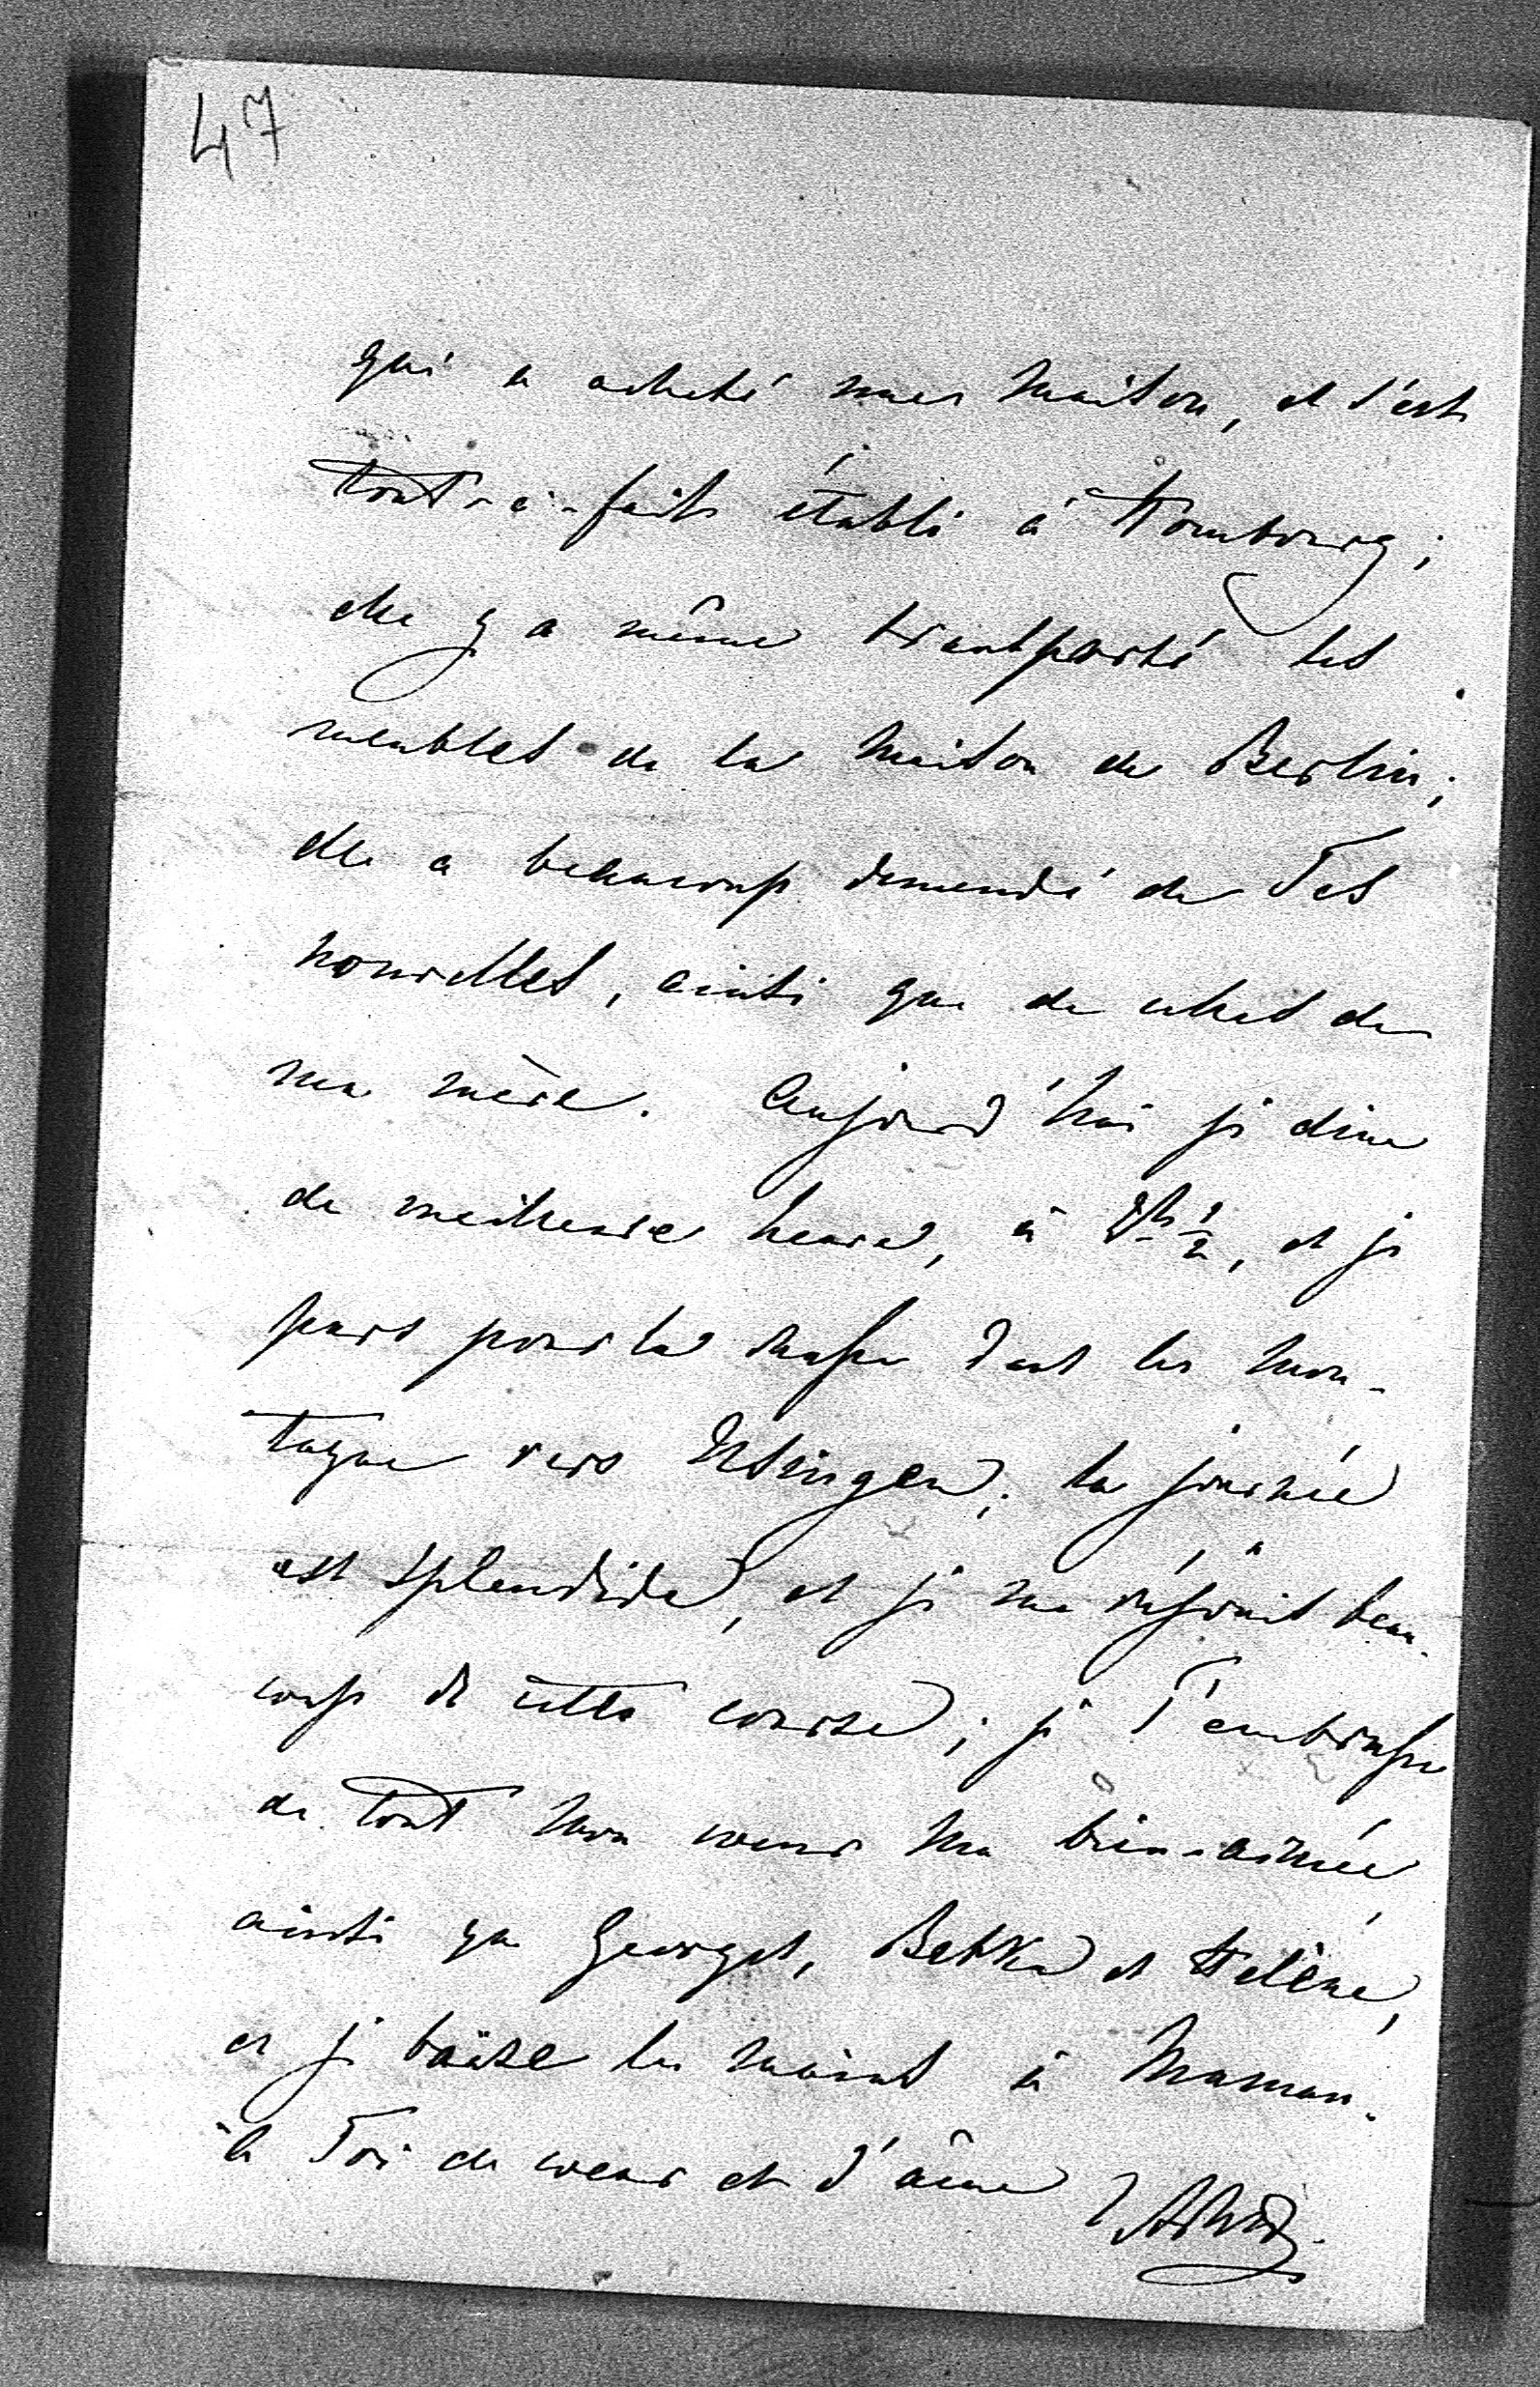 47
qui a acheté une maison, et s'est
tout-à-fait établi à Hombourg;
elle y a même transporté les
meubles de la maison de Berlin;
elle a beaucoup demandé de Tes
nouvelles, ainsi que de celles de
ma mère. Aujourd'hui je dine
de meilleure heure, à et je
pars pour la chasse dans les mon-
tagne vers Usingen; la journée
est splendide, et je me réjouis beau-
coup de cette course; je T'embrasse
de tout mon cœur ma bien-aimée,
ainsi que Georges, Bekka et Helène,
et je baise les mains à Maman.
à Toi de cœur et d'âme